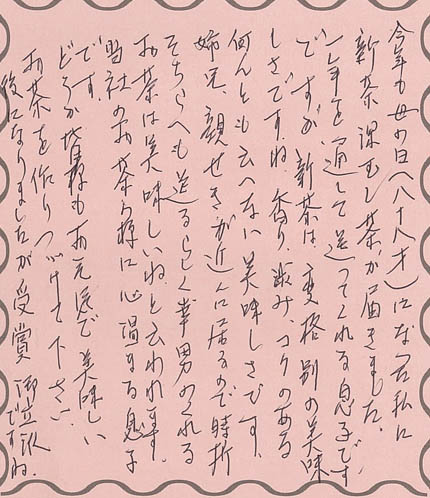 今年も母の日(八十八才)になる私に
新茶 深むし茶が届きました。
一年を通して送ってくれる息子です
ですが 新茶は 変格別の美味
しさですね 香り、歯み、コクのある
何んとも云へない美味しさです。
姉兄、親せきが近くに居るので時折
そちらへも送るらしく幸男のくれる
お茶は美味しいねと云われます。
御社のお茶の様に心温まる息子
です。
どうか皆様もお元気で美味しい
お茶を作りつづけて下さい。
後になりましたが受賞 御立派
ですね。